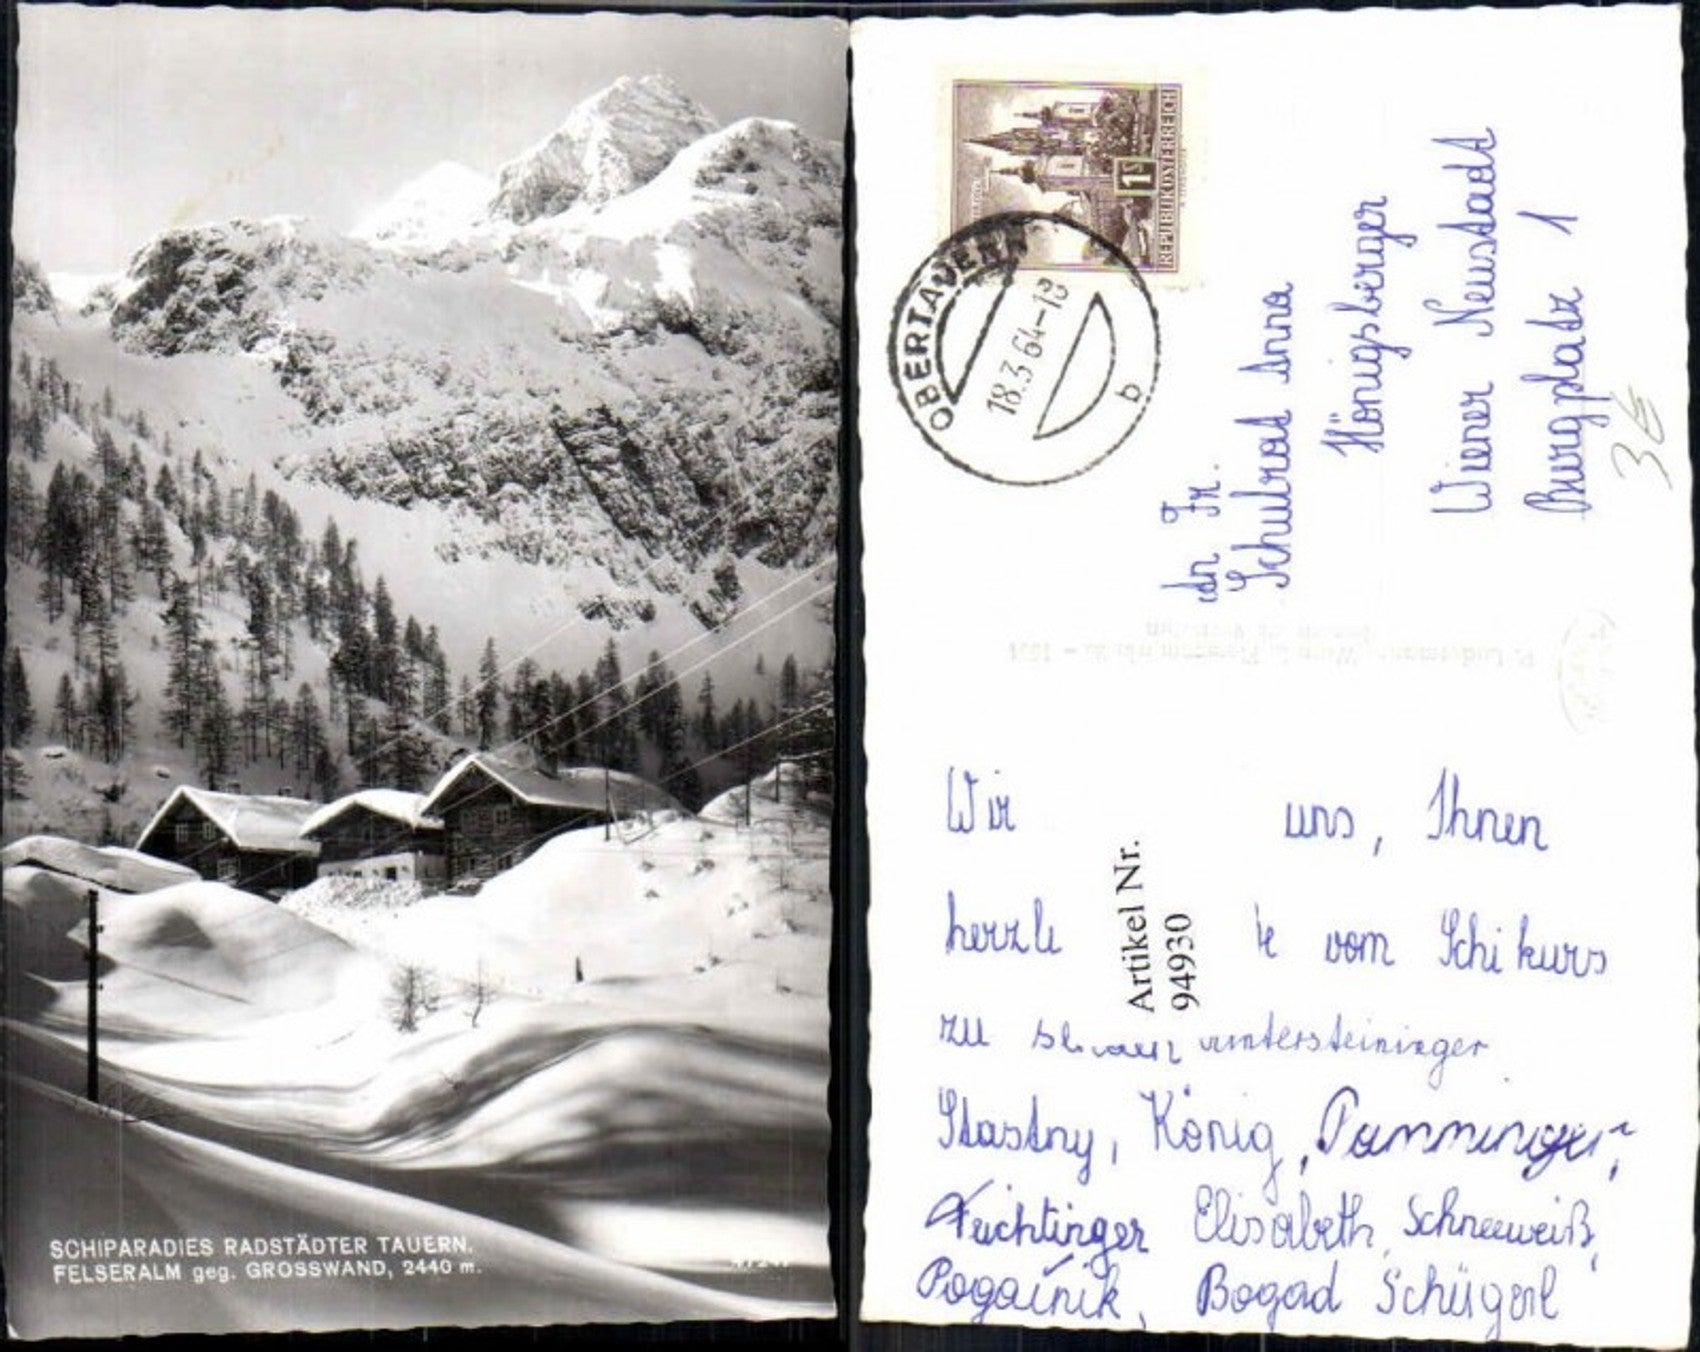 SCHIPARADIES RADSTÄDTER TAUERN.
FELSERALM geg. GROSSWAND, 2440 m.
REPUBLIK ÖSTERREICH
1S
OBERTAUERN
18.3.64-18
b
An Fr.
Schulrat Anna
Königsberger
Wiener Neustadt
Burgplatz 1
3€
Artikel Nr.
94930
Wir uns, Ihnen
herzli e vom Schikurs
zu untersteininger
Stastny, König, Pamminger,
Feichtinger Elisabeth, Schneeweiß,
Pogainik, Bogad Schügerl